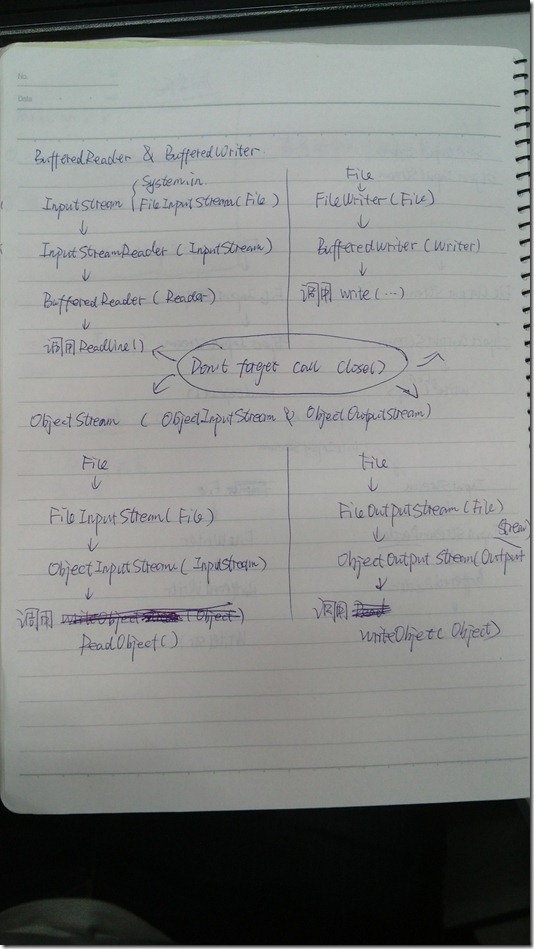 No.
Date
BufferedReader & BufferedWriter
System.in
InputStream { FileInputStream(File)
↓
InputStreamReader (InputStream)
↓
BufferedReader (Reader)
↓
调用 ReadLine()
File
↓
FileWriter(File)
↓
BufferedWriter (Writer)
↓
调用 write(...)
Don't forget call close()
ObjectStream ( ObjectInputStream & ObjectOutputStream)
File
↓
FileInputStream(File)
↓
ObjectInputStream(InputStream)
↓
调用 writeObject (Object)
ReadObject()
File
↓
FileOutputStream(File)
↓
ObjectOutputStream(Output
Stream)
↓
调用 Read
writeObjet(Object)